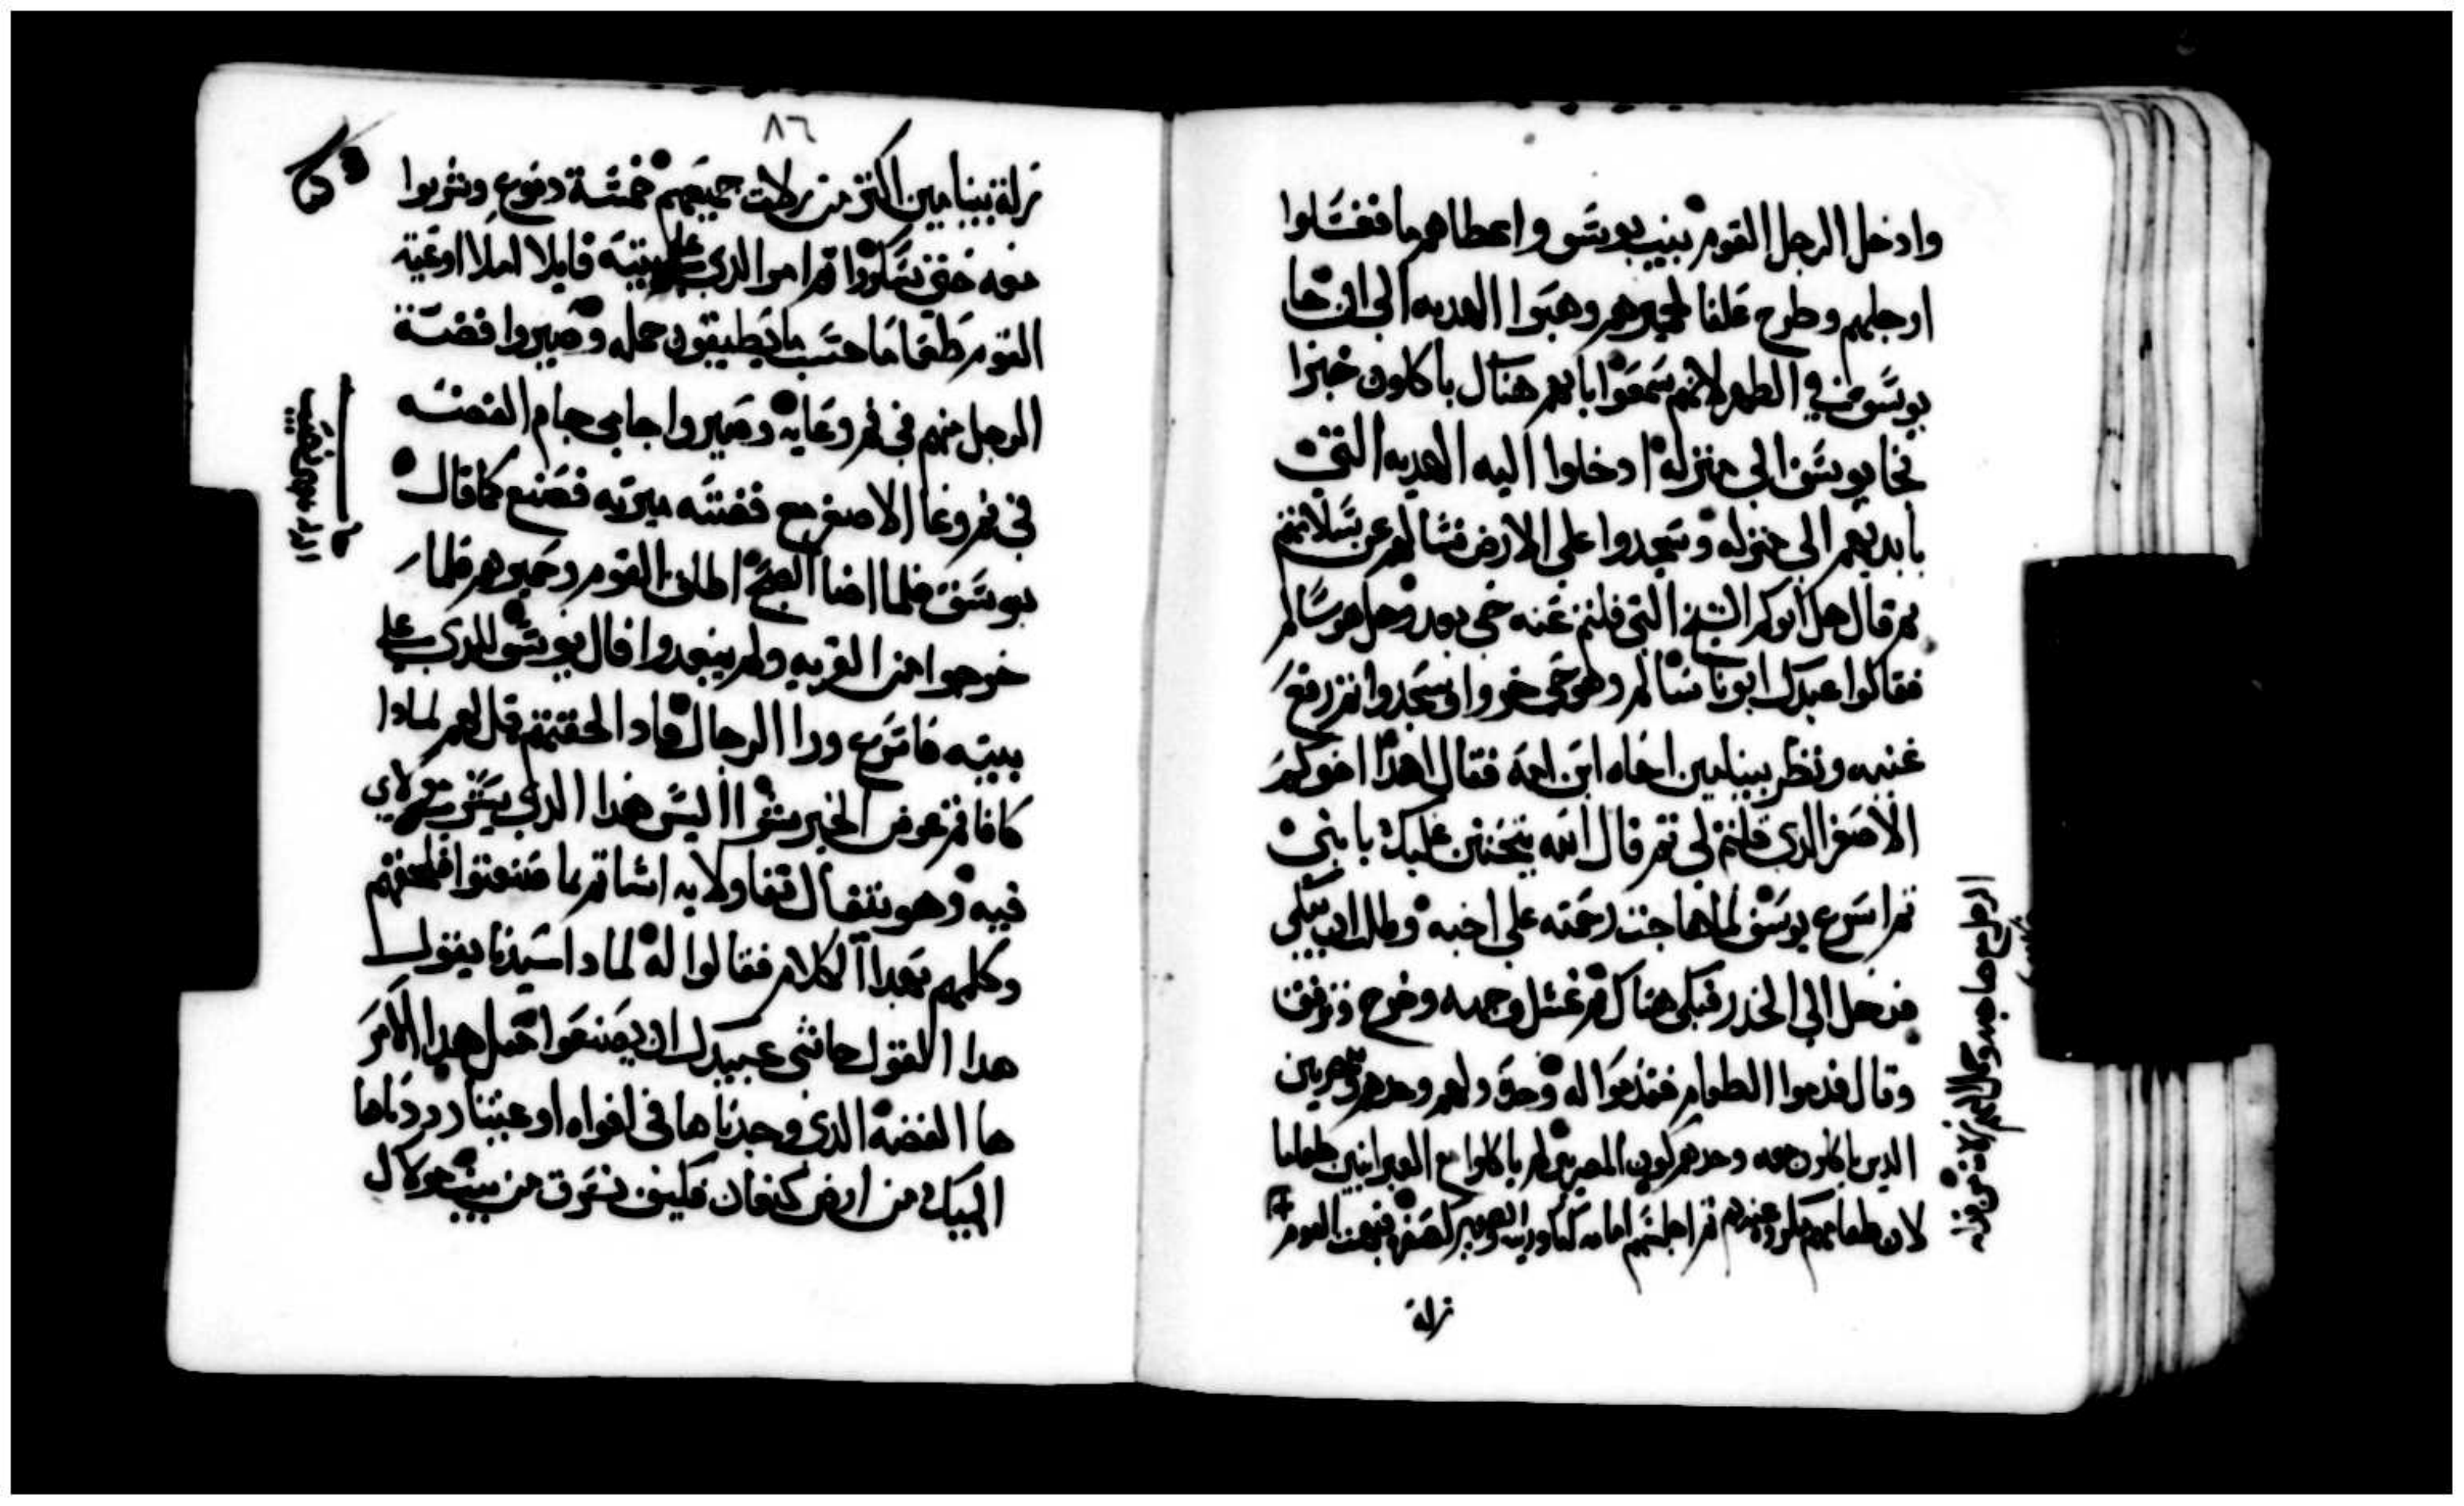 وادخل الرجل القوم بيت يوسف واعطاهم ما فغسلوا
ارجلهم وطرح علفا لحميرهم وهيوا الهديه الي ان جا
يوسف في الظهر لانهم سمعوا بانهم هناك ياكلون خبزا
فجا يوسف الي منزله ادخلوا اليه الهديه التي
بايديهم الي منزله وسجدوا علي الارض فسالهم عن سلامتهم
تم قال هل ابوكم الشيخ التي قلتم عنه حي بعد وهل هو سالم
فقالوا عبدك ابونا سالم وهو حي خروا وسجدوا تم رفع
عينيه ونظر بينيامين اخاه ابن امه فقال اهدا اخوكم
الاصغر الدي قلتم لي تم قال الله يتحنن عليك يا بني
تم اسرع يوسف لما هاجت رحمته علي اخيه وطلب ان يبكي
فدخل الي الخدر فبكي هناك تم غسل وجهه وخرج وترفق
وقال قدموا الطعام فقدموا له وحده ولهم وحدهم وللمصريين
الدين ياكلون معه وحدهم لكون المصريين لم ياكلوا مع العبرانيين طعاما
لان طعامهم مكروه عندهم تم اجلسهم امامه الكبير لكبره والصغير لصغره فبهت القوم
نزلة
٨٦
نزلة بينيامين اكتر من نزلات جميعهم خمسة دفوع وشربوا
معه حتي سكروا تم امر الدي علي بيته قايلا املا اوعية
القوم طعاما حسب ما يطيقون حمله وصيروا فضة
الرجل منهم في فم وعايه وصيروا جامي جام الفضه
في فم وعا الاصغر مع فضته ميرته فصنع كما قال
يوسف فلما اضا الصبح اطلق القوم وحميرهم فلما
خرجوا من القريه ولم يبعدوا قال يوسف للدي علي
بيته فاسرع ورا الرجال فادا لحقتهم قل لهم لمادا
كافاتم عوض الخير شرا اليس هدا الدي يشرب مولاي
فيه وهو يتفال تفاولا به اساتم بما صنعتوا فلحقهم
وكلمهم بهدا الكلام فقالوا له لمادا سيدنا يقول
هدا القول حاشي عبيدك ان يصنعوا متل هدا الامر
ها الفضة الدي وجدناها في افواه اوعيتنا رددناها
اليك من ارض كنعان فكيف نسرق من بيت مولاك